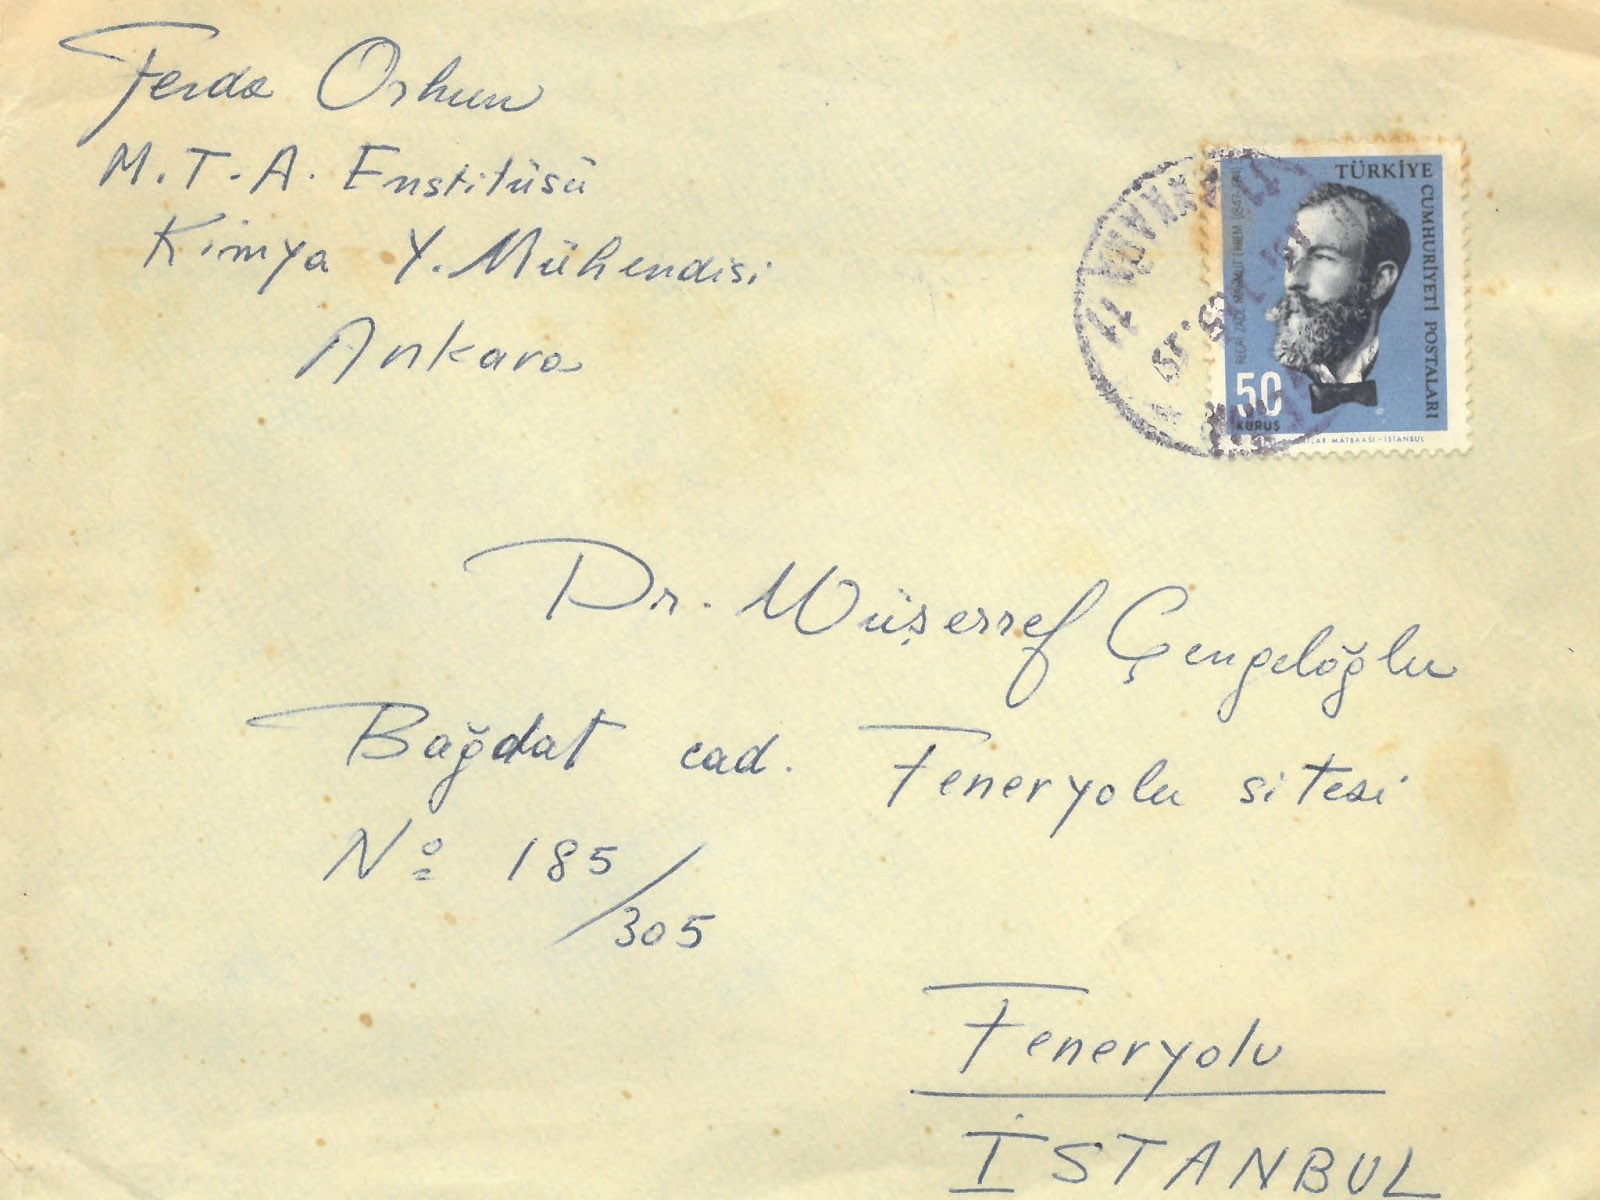 Ferda Orhun
M.T.A. Enstitüsü
Kimya Y. Mühendisi
Ankara
ANKARA
TÜRKİYE
CUMHURİYETİ POSTALARI
RECAİ ZADE MAHMUT EKREM
50
KURUŞ
MATBAASI - İSTANBUL
Dr. Müşerref Çengeloğlu
Bağdat cad. Feneryolu sitesi
No 185/305
Feneryolu
İSTANBUL